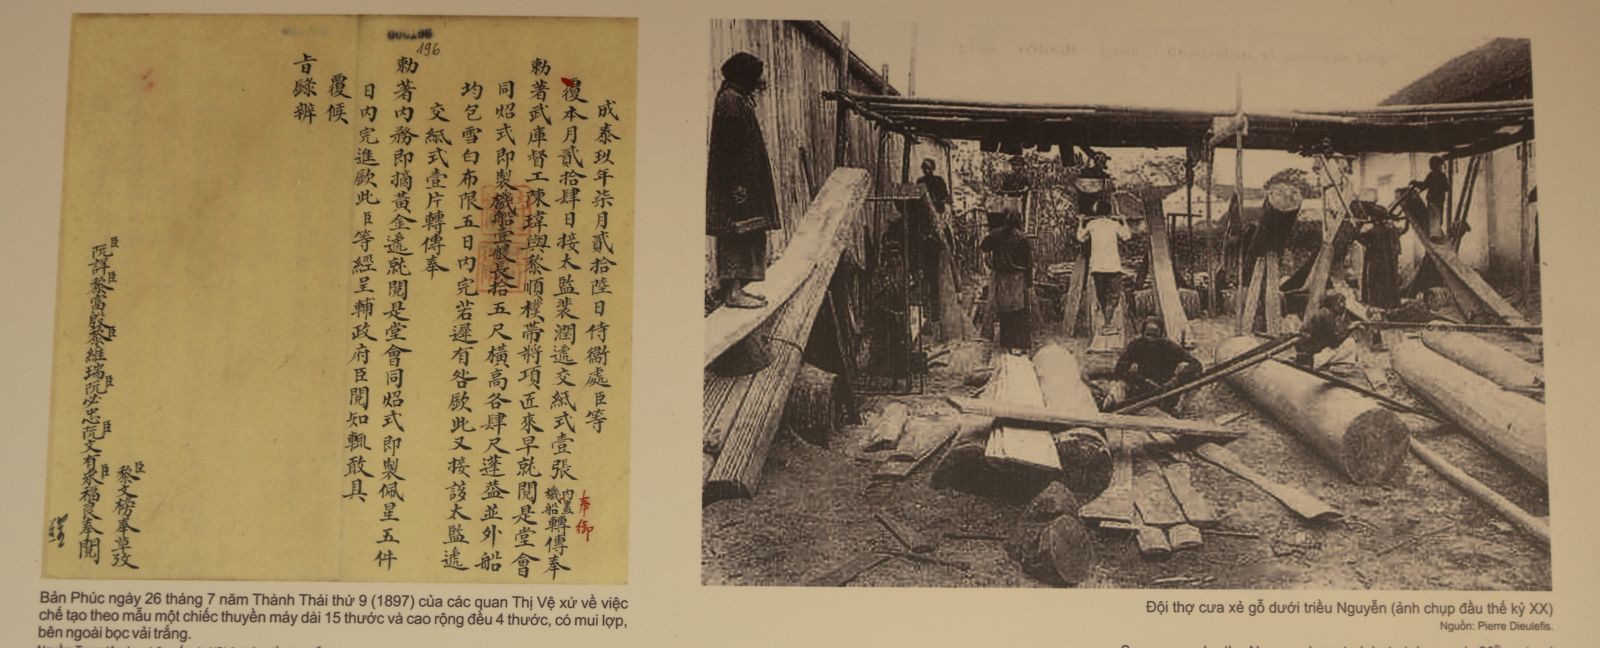 000196
196
成泰玖年柒月貳拾陸日侍衛處臣等
覆本月貳拾肆日接太監裴潤遞交紙式壹張內畫機船轉傳奉
奉御
勅著武庫督工陳瑋與黎順樸帶將項匠來早就閱是堂會
同炤式即製機船壹艘長拾五尺橫高各肆尺蓬蓋並外船
均包雪白布限五日內完若遲有咎欽此又接該太監遞
交紙式壹片轉傳奉
勅著內務即摘黃金遞就閱是堂會同炤式即製佩星五件
日內完進欽此臣等經呈輔政府臣閱知輒敢具
覆候
旨錄辦
臣黎文榜奉草攷
臣阮詳臣黎富殷臣黎維瑞臣阮必忠臣阮文有臣福良奉閱
Bản Phúc ngày 26 tháng 7 năm Thành Thái thứ 9 (1897) của các quan Thị Vệ xứ về việc
chế tạo theo mẫu một chiếc thuyền máy dài 15 thước và cao rộng đều 4 thước, có mui lợp,
bên ngoài bọc vải trắng.
TONKIN
Đội thợ cưa xẻ gỗ dưới triều Nguyễn (ảnh chụp đầu thế kỷ XX)
Nguồn: Pierre Dieulefis.